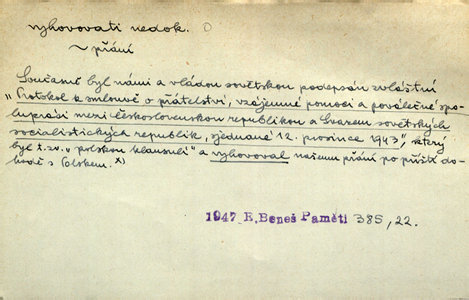 vyhovovati nedok. O
~ přání
Současně byl námi a vládou sovětskou podepsán zvláštní
„Protokol k smlouvě o přátelství, vzájemné pomoci a poválečné spo-
lupráci mezi Československou republikou a Svazem sovětských
socialistických republik, sjednané 12. prosince 1943", který
byl t. zv. „polskou klausulí" a vyhovoval našemu přání po příští do-
hodě s Polskem. x)
1947 E. Beneš Paměti 385, 22.